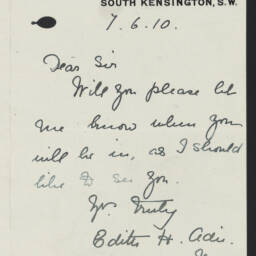 SOUTH KENSINGTON, S.W.
7. 6. 10.
Dear Sir
Will you please let
me know when you
will be in, as I should
like to see you.
Yrs. truly
Edith H. Adie.